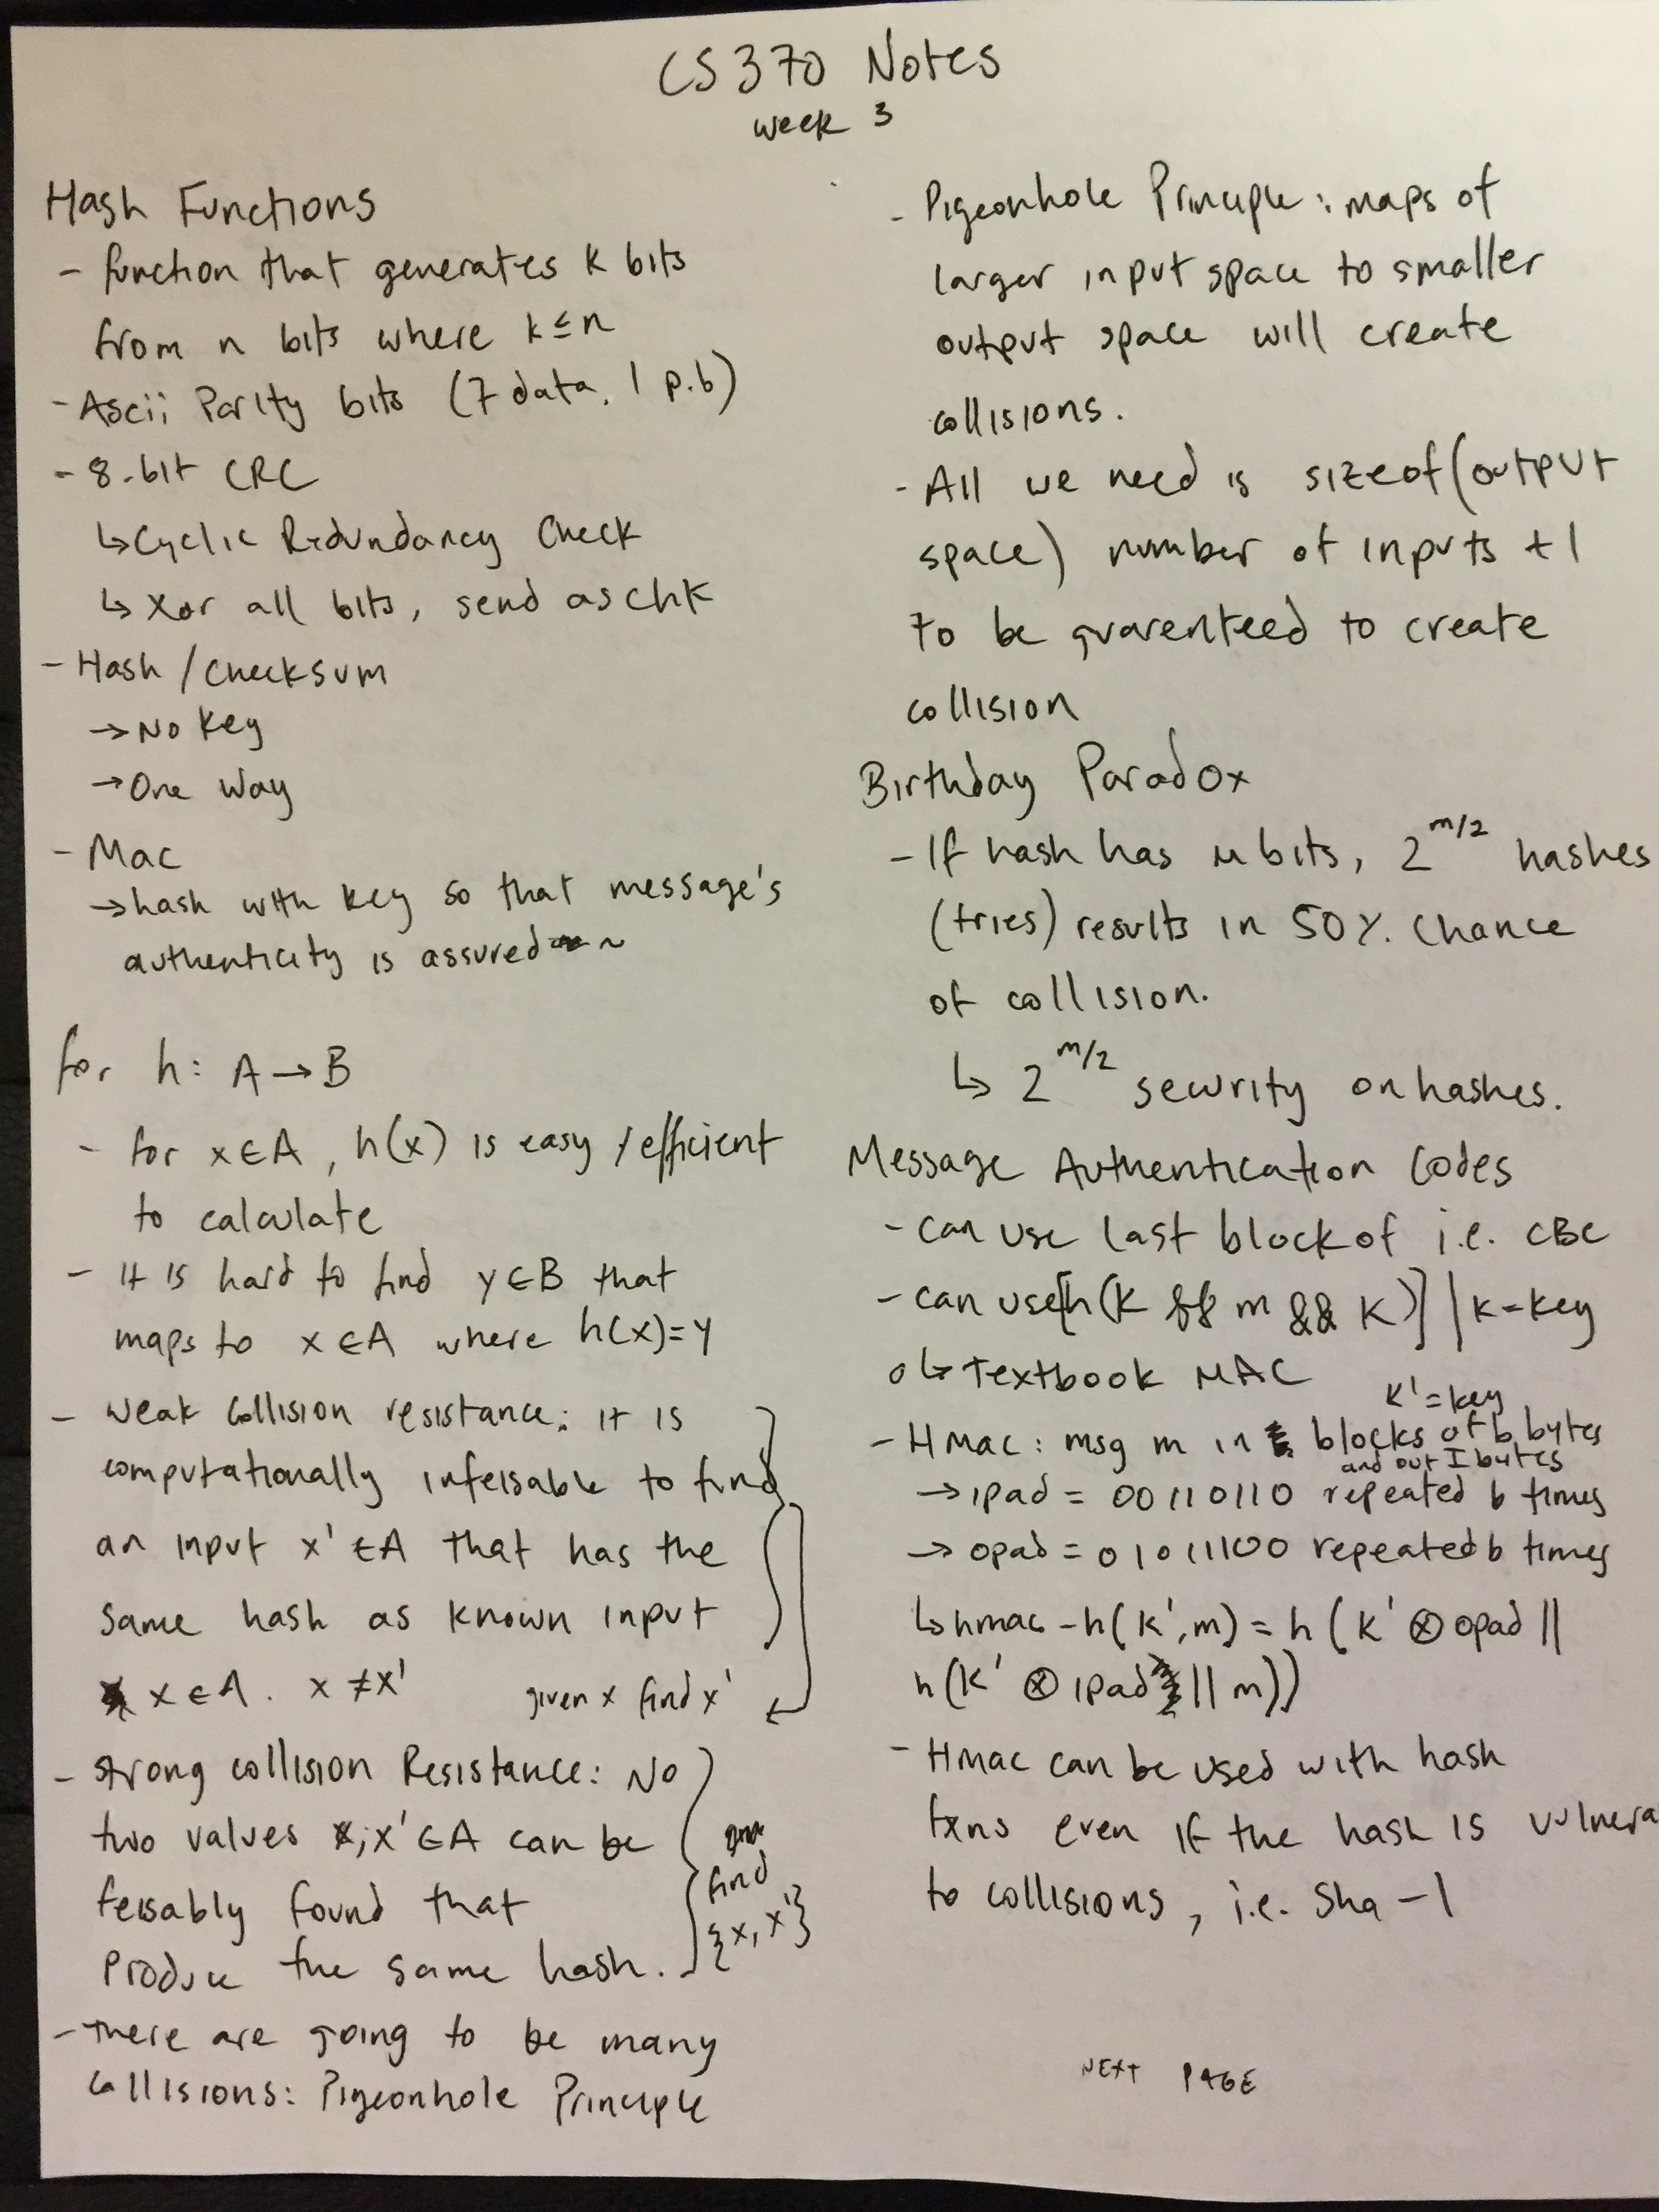 CS 370 Notes
week 3
Hash Functions
- function that generates k bits
from n bits where k ≤ n
- Ascii Parity bits (7 data, 1 p.b)
- 8-bit CRC
↳ Cyclic Redundancy Check
↳ Xor all bits, send as chk
- Hash / Checksum
→ No Key
→ One Way
- Mac
→ hash with key so that message's
authenticity is assured
for h: A → B
- for x ∈ A, h(x) is easy / efficient
to calculate
- it is hard to find y ∈ B that
maps to x ∈ A where h(x) = y
- weak collision resistance: it is
computationally infeisable to find
an input x' ∈ A that has the
same hash as known input
x ∈ A. x ≠ x'
given x find x'
- strong collision Resistance: No
two values x, x' ∈ A can be
feisably found that
produce the same hash.
find
{x, x'}
- there are going to be many
collisions: Pigeonhole Principle
- Pigeonhole Principle: maps of
larger input space to smaller
output space will create
collisions.
- All we need is sizeof(output
space) number of inputs +1
to be guarenteed to create
collision
Birthday Paradox
- If hash has m bits, 2^m/2 hashes
(tries) results in 50% chance
of collision.
↳ 2^m/2 security on hashes.
Message Authentication Codes
- can use last block of i.e. CBC
- can use [h(K && m && K)] | K = key
↳ Textbook MAC
K' = key
- Hmac: msg m in blocks of b bytes
and out I bytes
→ ipad = 00110110 repeated b times
→ opad = 01011100 repeated b times
↳ hmac - h(K', m) = h(K' ⊗ opad ||
h(K' ⊗ ipad || m))
- Hmac can be used with hash
fxns even if the hash is vulnera
to collisions, i.e. Sha-1
NEXT PAGE